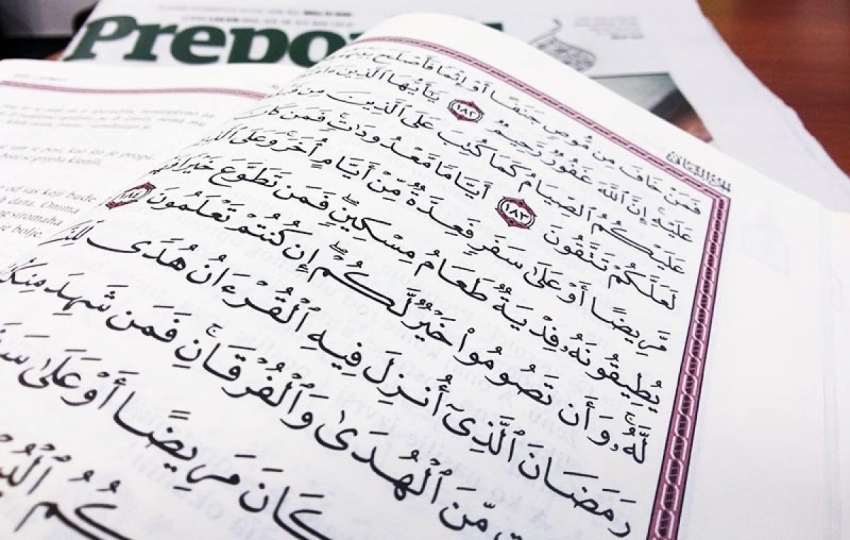 Prepo
فَمَنْ خَافَ مِن مُّوصٍ جَنَفًا أَوْ إِثْمًا فَأَصْلَحَ
عَلَيْهِ إِنَّ ٱللَّهَ غَفُورٌ رَّحِيمٌ ١٨٢ يَٰٓأَيُّهَا ٱلَّذِينَ
عَلَيْكُمُ ٱلصِّيَامُ كَمَا كُتِبَ عَلَى ٱلَّذِينَ مِن
لَعَلَّكُمْ تَتَّقُونَ ١٨٣ أَيَّامًا مَّعْدُودَٰتٍ فَمَن كَانَ
مَّرِيضًا أَوْ عَلَىٰ سَفَرٍ فَعِدَّةٌ مِّنْ أَيَّامٍ أُخَرَ وَعَلَى
يُطِيقُونَهُۥ فِدْيَةٌ طَعَامُ مِسْكِينٍ فَمَن تَطَوَّعَ خَيْرًا
لَّهُۥ وَأَن تَصُومُوا۟ خَيْرٌ لَّكُمْ إِن كُنتُمْ تَعْلَمُونَ ١٨٤
رَمَضَانَ ٱلَّذِىٓ أُنزِلَ فِيهِ ٱلْقُرْءَانُ هُدًى
مِّنَ ٱلْهُدَىٰ وَٱلْفُرْقَانِ فَمَن شَهِدَ مِنكُمُ
كَانَ مَرِيضًا أَوْ عَلَىٰ